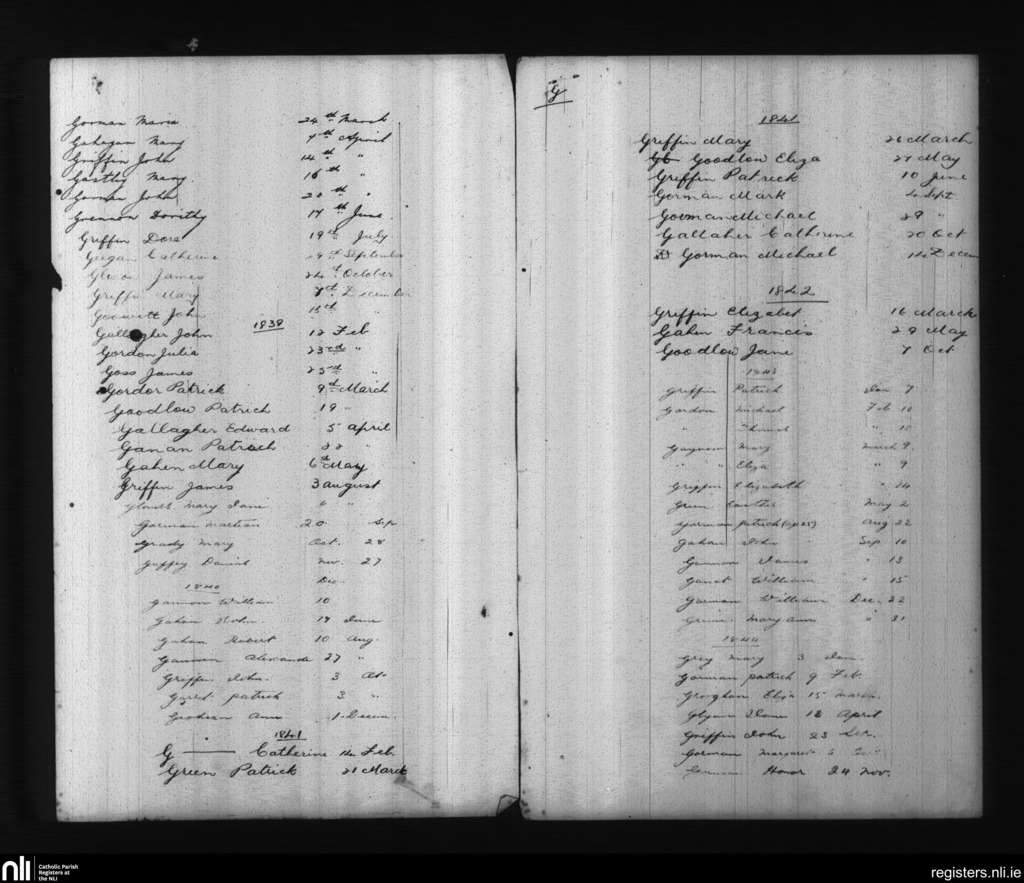 Gorman Maria 24th March
Gahagan Mary 7th April
Griffin John 14th "
Gastley Mary. 16th "
Gorman John 20th "
Grennon Dorithy 17th June
Griffin Dora 19th July
Geegan Catherine 29th September
James 24th October
Griffin Mary 7th December
John 15th "
1838
Gallagher John 12 Feb
Gordon Julia 23rd "
Goss James 25th "
Gordor Patrick 9th March
Goodlow Patrick 19 "
Gallagher Edward 5 April
Ganan Patrick 22 "
Gahen Mary 6th May
Griffin James 3 August
Mary Jane " "
Gorman Martian 20 Sep
Grady Mary Oct. 28
Guffey Daniel Nov. 27
1840 Dec.
Gannon William 10
Gahan John 19 June
Gahan Robert 10 Aug.
Gannon Alexande 27 "
Griffin John. 3 Oct.
patrick 3 "
Ann 1. Decem.
1841
G—— Catherine 14 Feb
Green Patrick 21 March
G
1841
Griffin Mary 26 March
Goodlow Eliza 27 May
Griffin Patrick 10 June
Gorman Mark Sept.
Gorman Michael 29 "
Gallaher Catherine 20 Oct
Gorman Michael 14 Decem
1842
Griffin Elizabet 16 March
Gahen Francis 29 May
Goodlow Jane 7 Oct
1843
Griffin Patrick Jan 7
Gordon Michael Feb 10
" Thomas " 10
Mary March 9
" " Eliza " 9
Griffin Elizabeth " 14
Green May 2
Gorman patrick Aug 22
Gahan John Sep 10
Gannon James " 13
William " 15
Gorman William Dec. 22
Mary Ann " 31
1844
Grey Mary 3 Jan.
Gorman patrick 9 Feb.
Groghan Eliza 15 March.
Glynn Jane 18 April
Griffin John 23
Gorman Margaret
Honor 24 Nov.
nli
Catholic Parish
Registers at
the NLI
registers.nli.ie